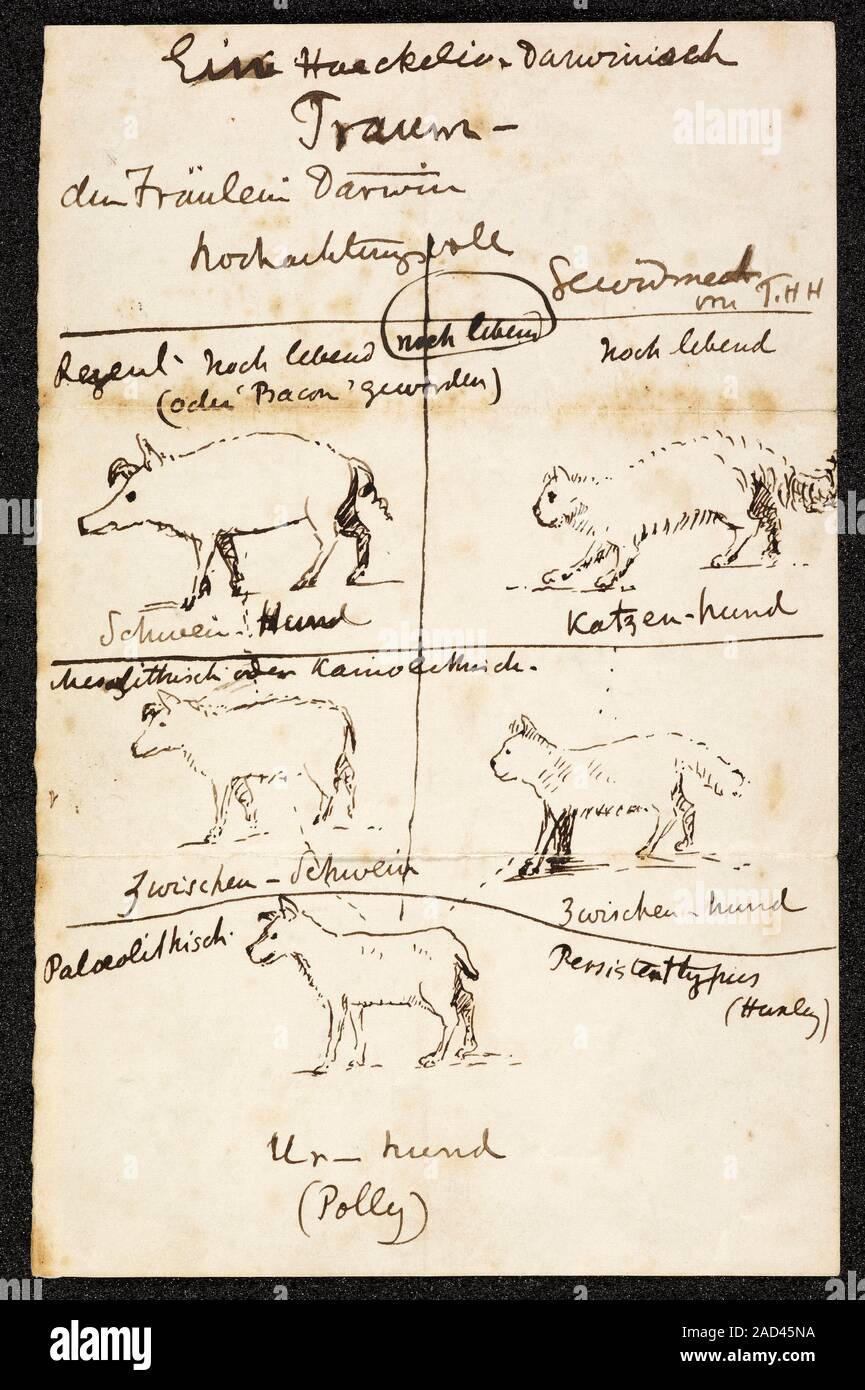 Ein Haeckelio-Darwinisch
Traum-
den Fräulein Darwin
hochachtungsvoll
Gewidmet
von T.H H
Rezent- noch lebend
noch lebend
noch lebend
(oder 'Bacon' geworden)
Schwein-Hund
Katzen-hund
Mesolithisch oder Kainolithisch.
Zwischen-Schwein
Zwischen-hund
Palæolithisch.
Persistenttypus
(Huxley)
Ur-hund
(Polly)
alamy
alamy
Image ID: 2AD45NA
www.alamy.com